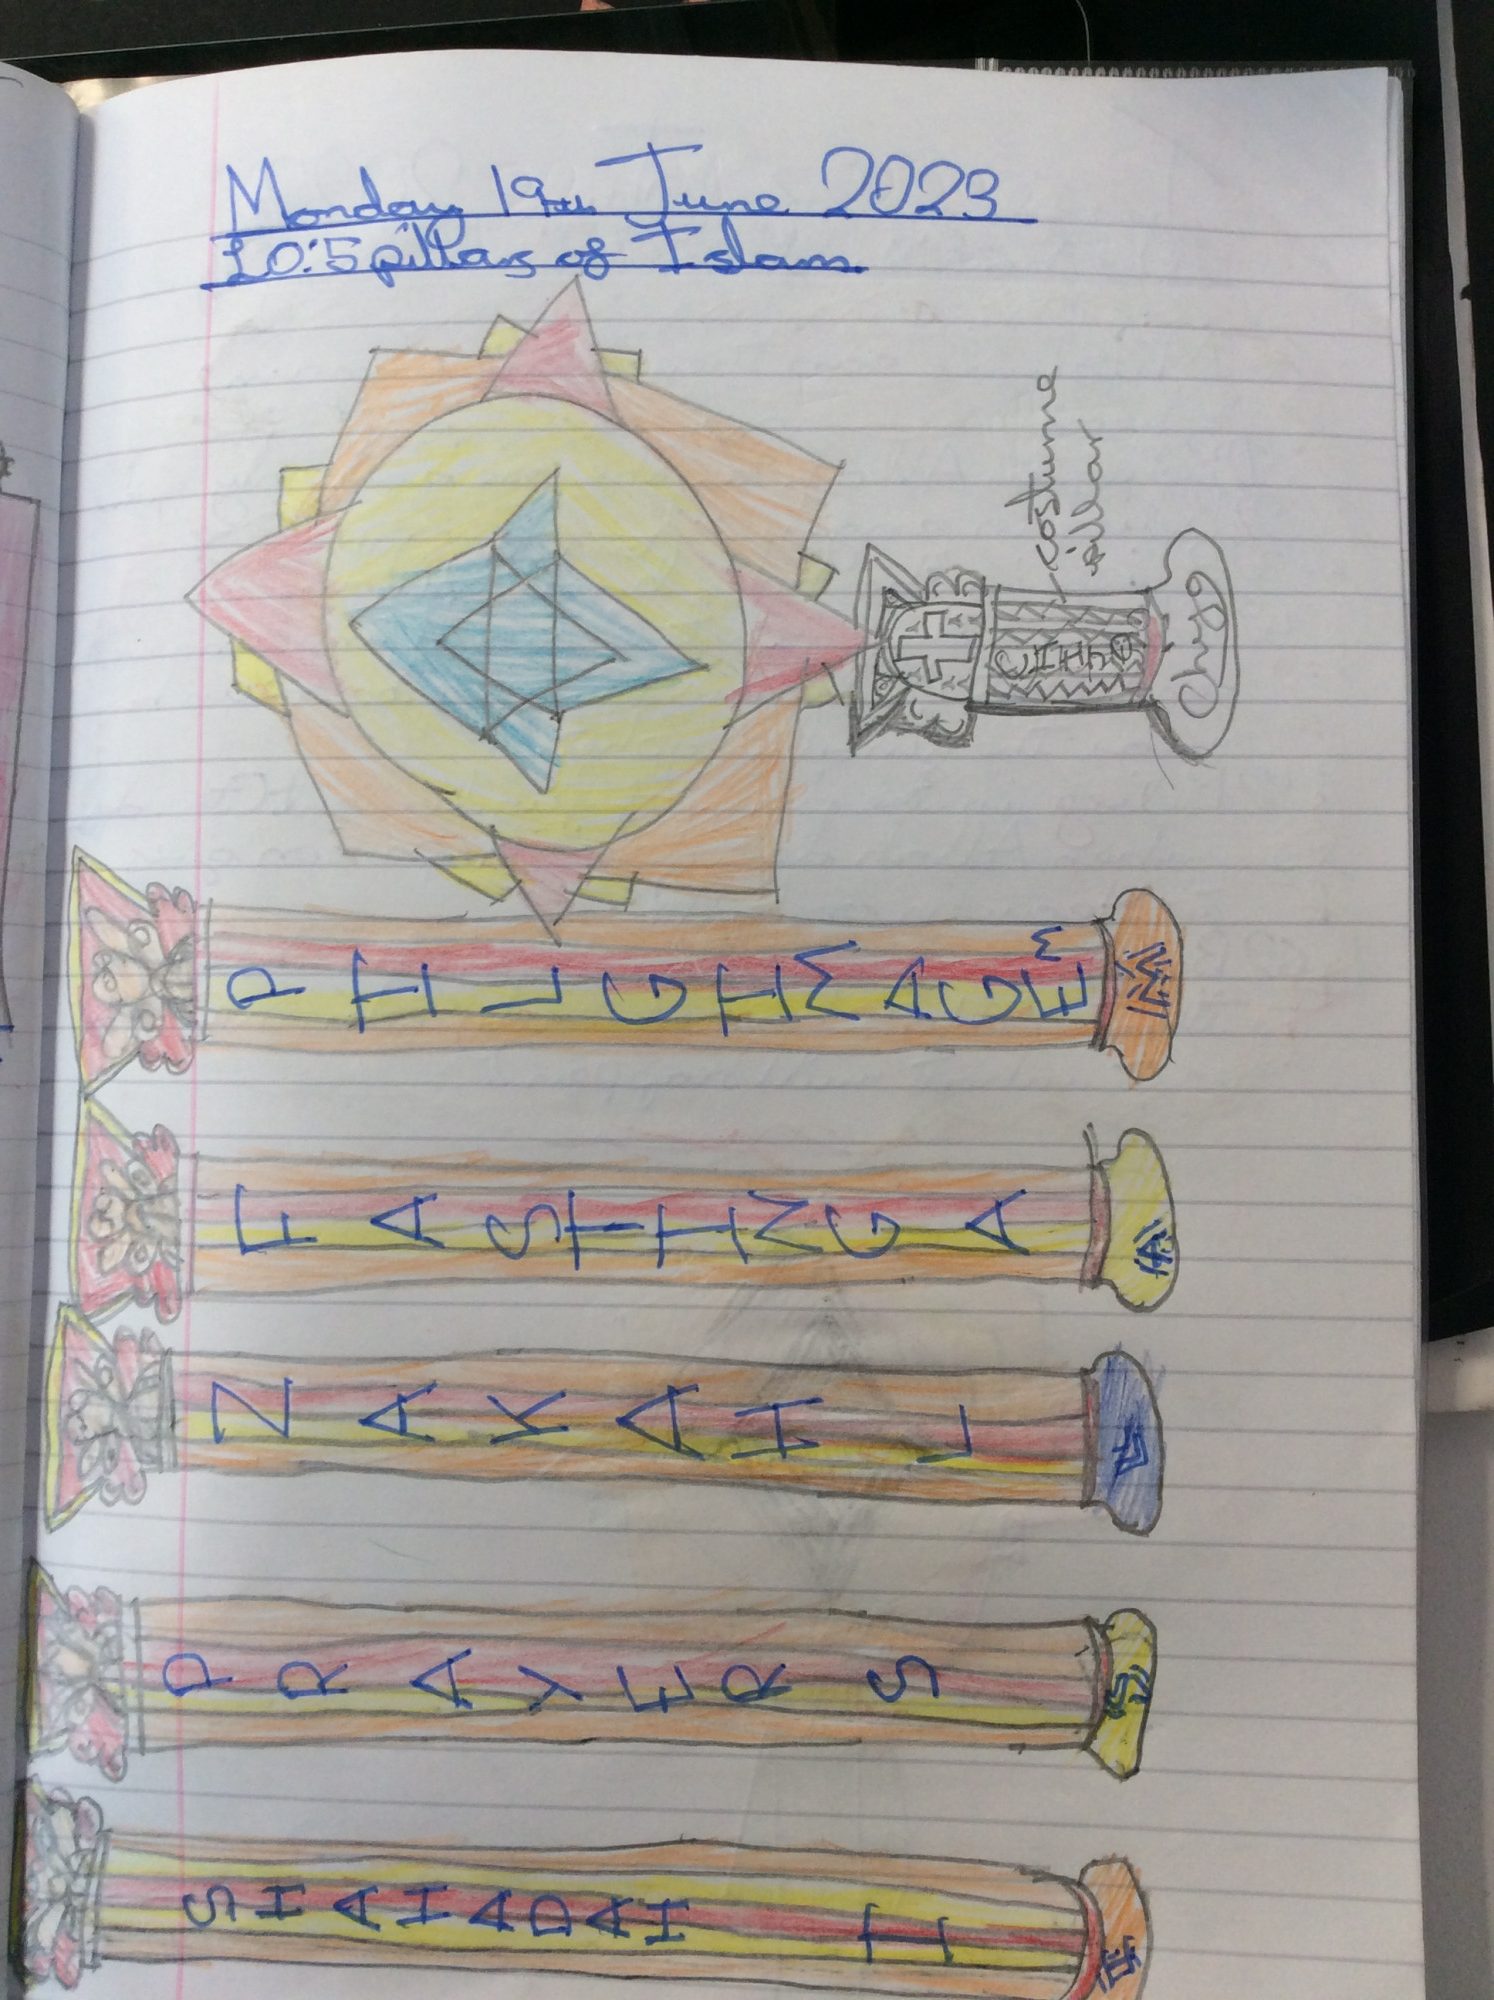 Monday 19th June 2023
LO: 5 pillars of Islam
costume
pillar
PILGIMAGE M
M
FASTING A
A
ZAKAH L
L
PRAYER S
S
SHAHADAH I
I